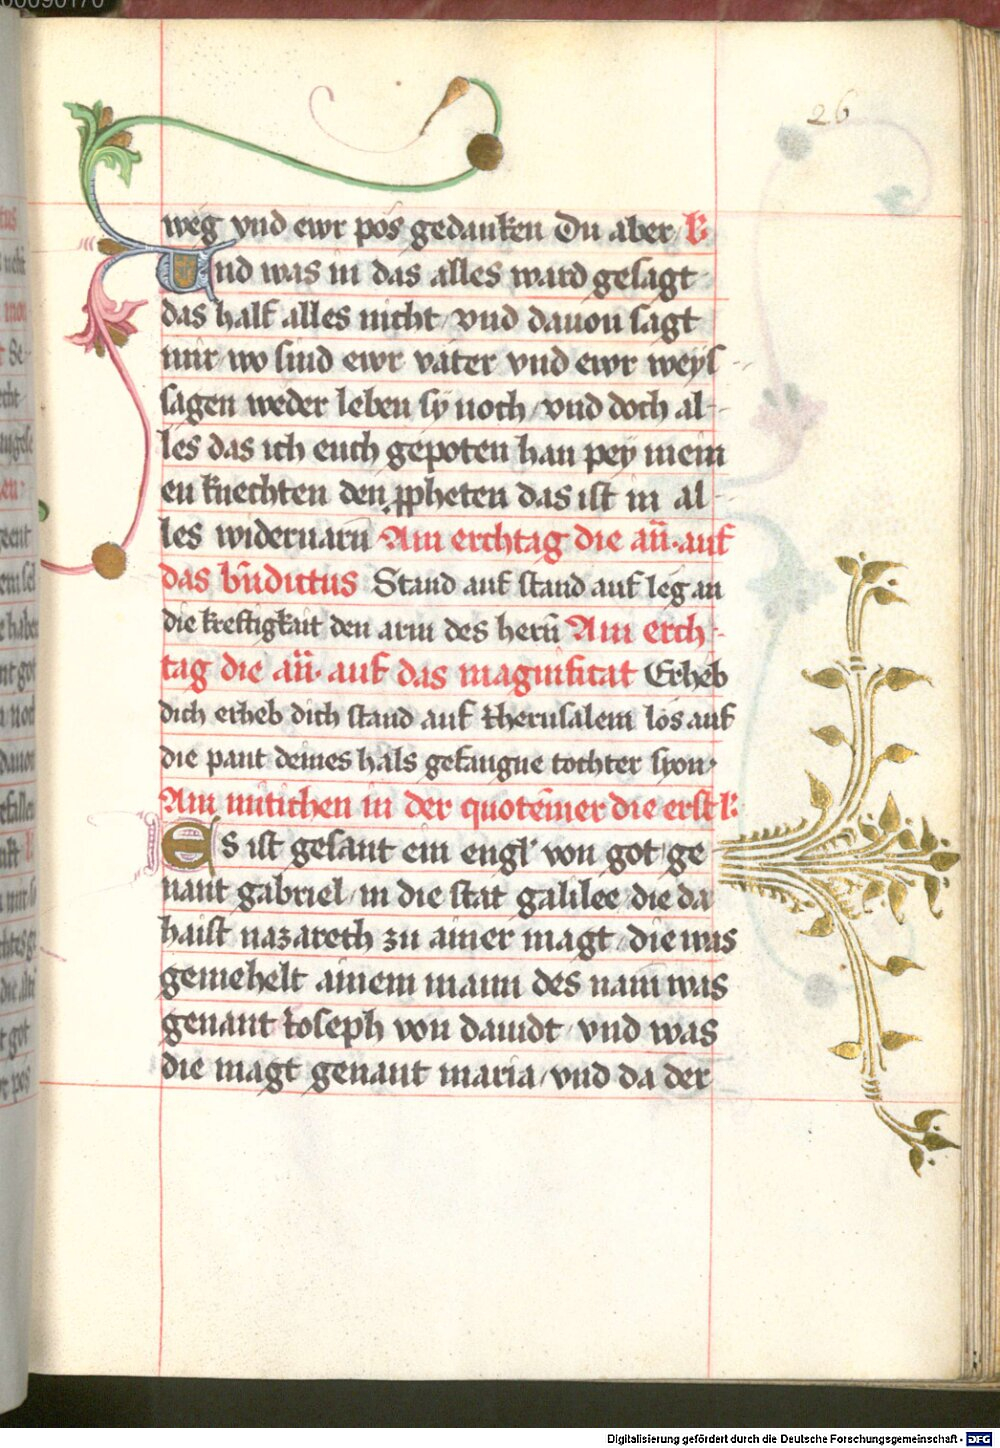 26
weg vnd ewr pös gedanken Du aber
Und was in das alles ward gesagt
das half alles nicht / vnd dauon sagt
mir / wo sind ewr väter vnd ewr weys
sagen weder leben sy noch / vnd doch al-
les das ich euch gepoten han pey mein
en knechten den ppheten das ist in al-
les wideruarn Am erchtag die an̄. auf
das bn̄dictus Stand auf stand auf leg an
die kreftigkait den arm des herr̄ Am erch-
tag die an̄. auf das magnificat Erheb
dich erheb dich stand auf Iherusalem los auf
die pant deines hals gefangne tochter syon.
Am mitichen in der quotem̄er die erst
Es ist gesant ein engl von got / ge
nant gabriel / in die stat galilee / die da
haist nazareth zu ainer magt / die was
gemehelt ainem mann des nam was
genant Ioseph von dauidt / vnd was
die magt genant maria / vnd da der
Digitalisierung gefördert durch die Deutsche Forschungsgemeinschaft - DFG